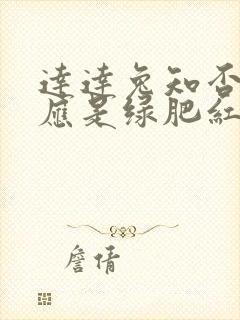 達達兔知否
應是绿肥紅
詹倩